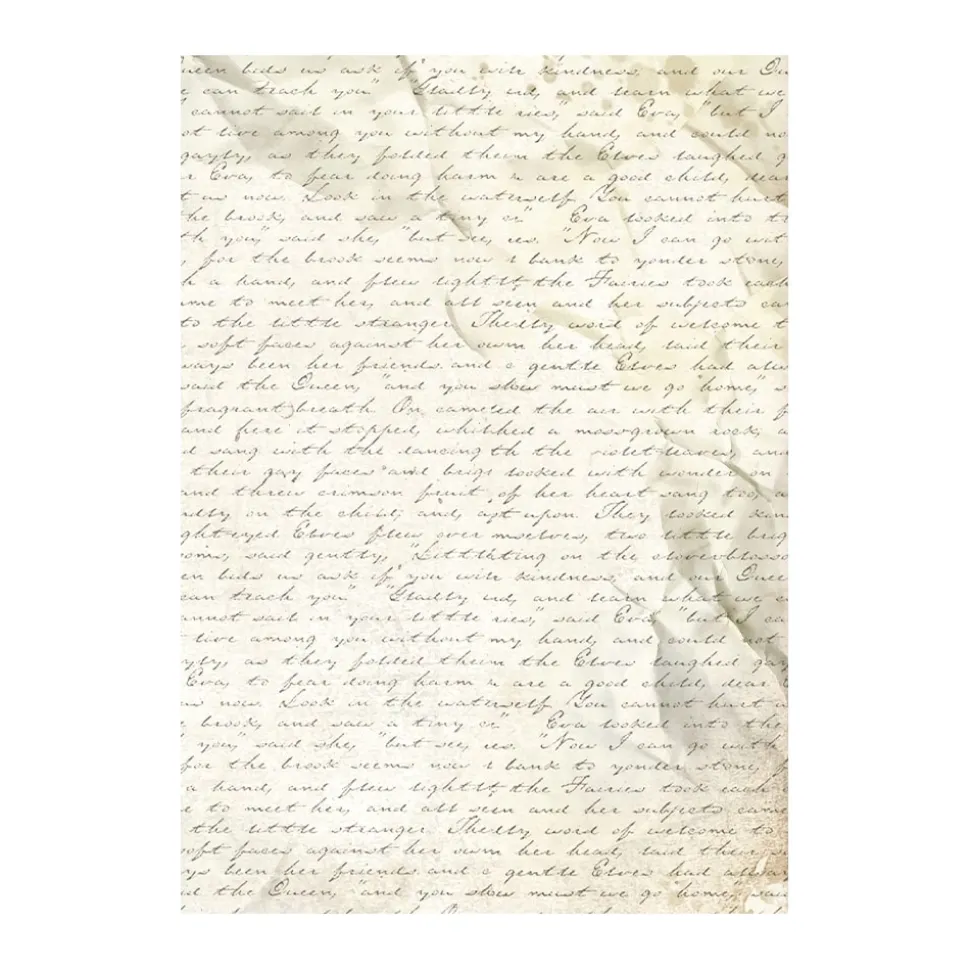 ueen bids us ask if you with kindness, and our Qu
e can teach you." "Gladly and, and learn what we
cannot sail in your little ries," said Eva, "but I
ot live among you without my hand, and could no
gayly, as they folded them the Elves laughed g
r Eva, to fear doing harm are a good child, dear
t us now. Look in the waterself. You cannot hurt
he brook, and saw a tiny or" Eva looked into t
th you," said she, "but see, us. "Now I can go wit
, for the brook seems now bank to yonder stone,
h a hand, and flew light the Fairies took each
me to meet her, and all seen and her subjects ca
to the little stranger. The word of welcome t
soft faces against her own her head, laid their
ways been her friends and gentle Elves had alw
said the Queen, "and you show must we go home," s
fragrant breath. On came led the air with their f
and here it stopped, whilhed a mossgrown rock, a
d sang with the dancing th the violet leaves, and
their gay faces and brigt looked with wonder on
and threw crimson fruit of her heart sang too, a
on the child, and, upon. They looked kin
ghteyed Elves flew over mselves, two little brig
oms, said gently, "Littleting on the cloverblosso
en bids us ask if you with kindness, and our Quee
can teach you." "Gladly and, and learn what we c
annot sail in your little ries," said Eva, "but I ca
live among you without my hand, and could not
yly, as they folded them the Elves laughed gay
Eva, to fear doing harm are a good child, dear
us now. Look in the waterself. You cannot hurt u
brook, and saw a tiny or" Eva looked into the
you," said she, "but see, us. "Now I can go with
for the brook seems now bank to yonder stone, f
a hand, and flew light the Fairies took each
e to meet her, and all seen and her subjects came
the little stranger. The word of welcome to
soft faces against her own her head, laid their s
ys been her friends and gentle Elves had alway
id the Queen, "and you show must we go home," said